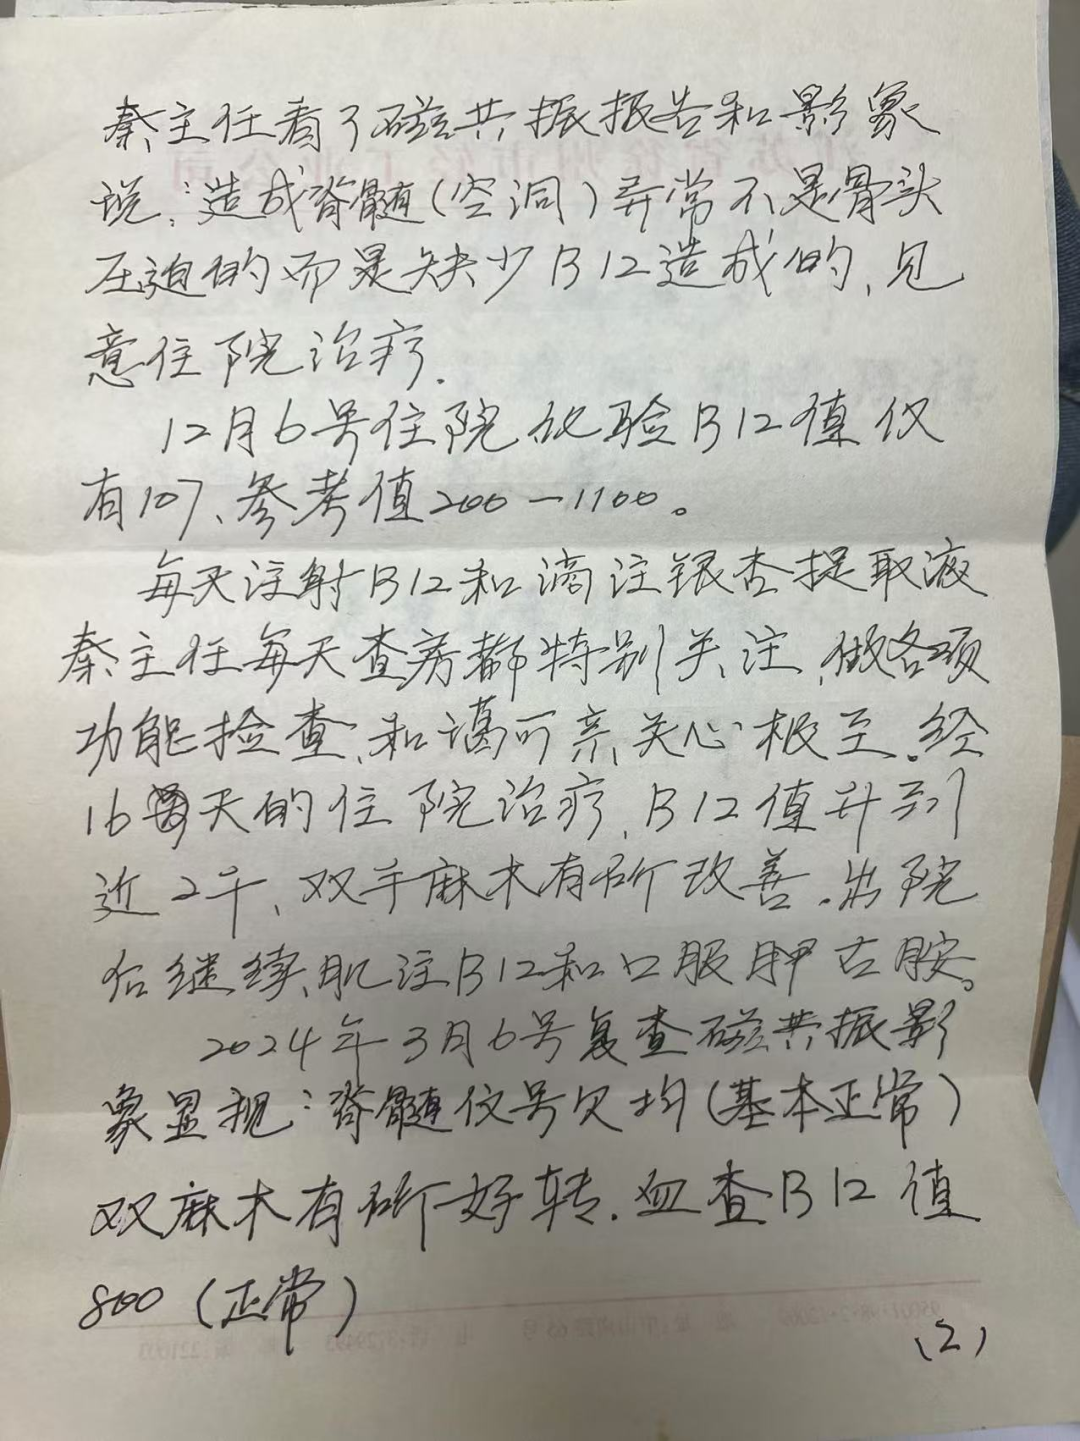 秦主任看了磁共振报告和影象
说：造成脊髓(空洞)异常不是骨头
压迫的而是缺少B12造成的、见
意住院治疗.
12月6号住院化验B12值仅
有107、参考值200一1100。
每天注射B12和滴注银杏提取液
秦主任每天查房都特别关注、做各项
功能检查、和蔼可亲、关心极至.经
16天的住院治疗、B12值升到
近2千、双手麻木有所改善.出院
后继续肌注B12和口服甲古胺。
2024年3月6号复查磁共振影
象显现：脊髓仪号欠均(基本正常)
双麻木有所好转.血查B12值
800(正常)
(2)